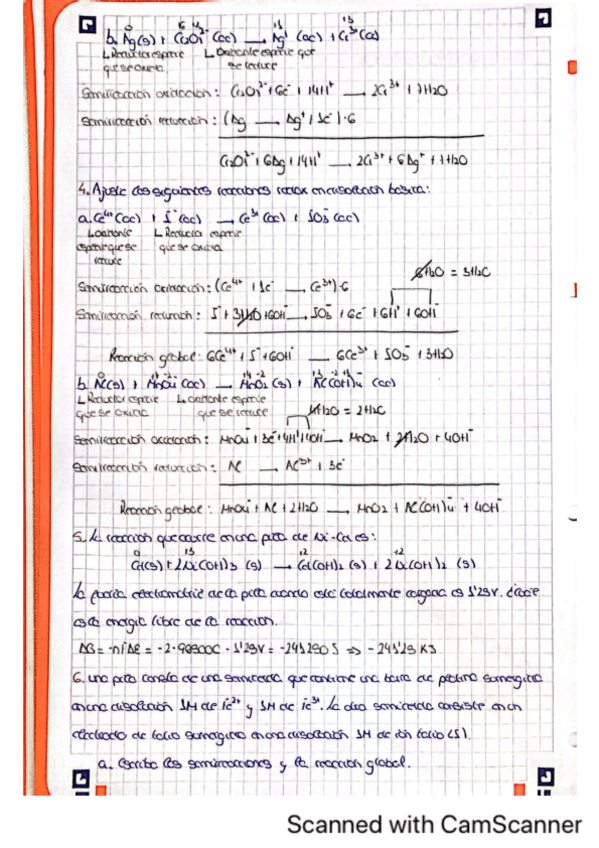 b. Ag(s) + Cr2O7^2- (ac) → Ag+ (ac) + Cr^3+ (ac)
Reductor especie que se oxida
Oxidante especie que se reduce
Semirreacción oxidación: Cr2O7^2- + 6e- + 14H+ → 2Cr^3+ + 7H2O
Semirreacción reducción: (Ag → Ag+ + 1e-)·6
Cr2O7^2- + 6Ag + 14H+ → 2Cr^3+ + 6Ag+ + 7H2O
4. Ajuste las siguientes reacciones redox en disolución básica:
a. Ce^4+ (ac) + I- (ac) → Ce^3+ (ac) + IO3- (ac)
Oxidante especie que se reduce
Reductor especie que se oxida
6H2O = 3H2O
Semirreacción oxidación: (Ce^4+ + 1e- → Ce^3+)·6
Semirreacción reducción: I- + 3H2O + 6OH- → IO3- + 6e- + 6H+ + 6OH-
Reacción global: 6Ce^4+ + I- + 6OH- → 6Ce^3+ + IO3- + 3H2O
b. Al(s) + MnO4- (ac) → MnO2 (s) + Al(OH)4- (ac)
Reductor especie que se oxida
Oxidante especie que se reduce
4H2O = 2H2O
Semirreacción oxidación: MnO4- + 3e- + 4H+ + 4OH- → MnO2 + 2H2O + 4OH-
Semirreacción reducción: Al → Al^3+ + 3e-
Reacción global: MnO4- + Al + 2H2O → MnO2 + Al(OH)4- + 4OH-
5. La reacción que ocurre en una pila de Ni-Cd es:
Cd(s) + 2Ni(OH)3 (s) → Cd(OH)2 (s) + 2Ni(OH)2 (s)
La fuerza electromotriz de la pila cuando está totalmente cargada es 1'25V. ¿Cuál es la energía libre de la reacción.
6. Una pila consta de una semicelda que contiene una barra de platino sumergida
en una disolución 1M de Fe^2+ y 1M de Fe^3+. La otra semicelda consiste en un
electrodo de talio sumergido en una disolución 1M de ión talio (I).
a. Escriba las semirreacciones y la reacción global.
Scanned with CamScanner